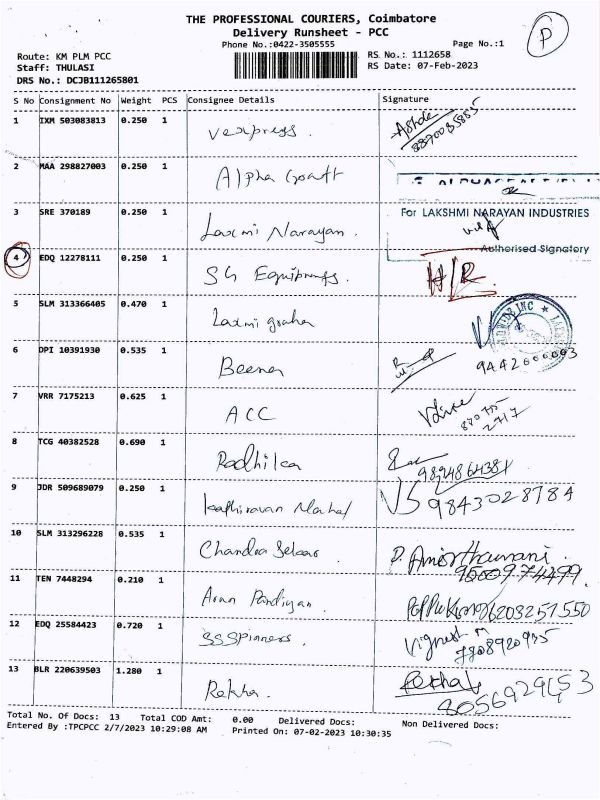 THE PROFESSIONAL COURIERS, Coimbatore
Delivery Runsheet - PCC
Phone No.:0422-3505555
Page No.:1
P
Route: KM PLM PCC
Staff: THULASI
DRS No.: DCJB111265801
RS No.: 1112658
RS Date: 07-Feb-2023
S No Consignment No Weight PCS Consignee Details Signature
1 IXM 503083813 0.250 1 Vexpress.
8870035885
2 MAA 298827003 0.250 1 Alpha Craft
3 SRE 370189 0.250 1 Laxmi Narayan.
For LAKSHMI NARAYAN INDUSTRIES
Authorised Signatory
4 EDQ 12278111 0.250 1 SG Equipments. H/R
5 SLM 313366405 0.470 1 Laxmi graha
6 DPI 10391930 0.535 1 Beena
7 VRR 7175213 0.625 1 ACC
8 TCG 40382528 0.690 1 Radhika
9 JDR 509689079 0.250 1 kathiravan Mahal VS 9843028784
10 SLM 313296228 0.535 1 Chandra Sekar
9500974499.
11 TEN 7448294 0.210 1 Arun Pandiyan. 6203251550
12 EDQ 25584423 0.720 1 SSSpinners. Vignesh
13 BLR 220639503 1.280 1 Rekha. Rekha
Total No. Of Docs: 13 Total COD Amt: 0.00 Delivered Docs: Non Delivered Docs:
Entered By :TPCPCC 2/7/2023 10:29:08 AM Printed On: 07-02-2023 10:30:35